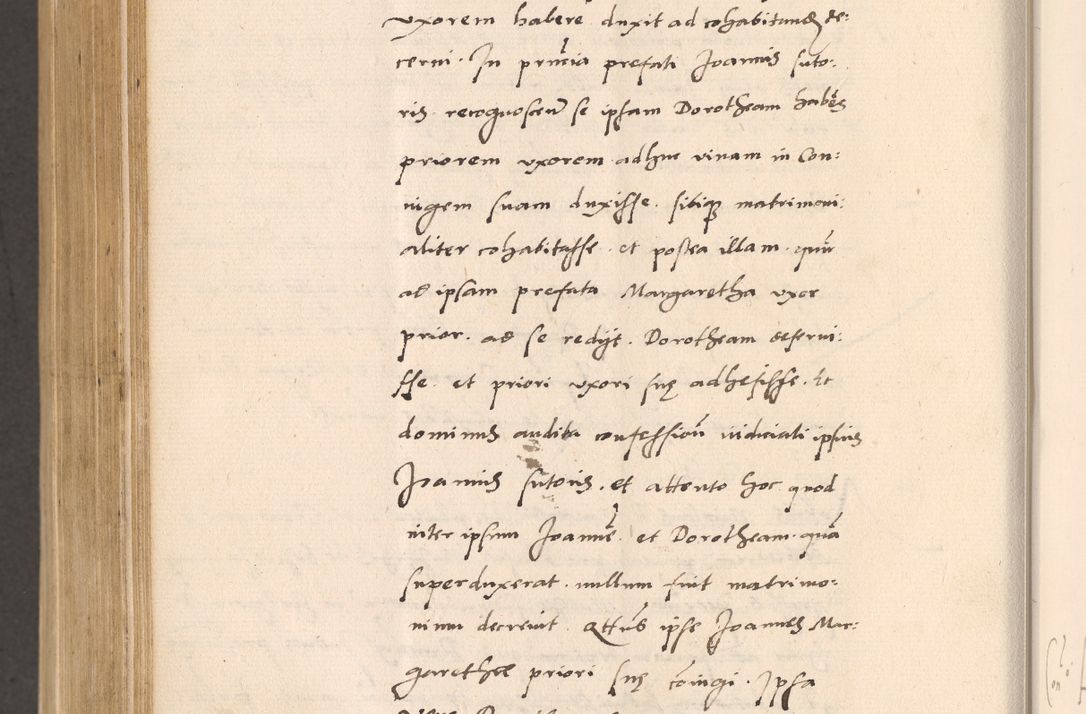 uxorem habere duxit ad cohabitand de:
cerni. In pñcia prefati Joannis suto:
ris. recognoscen se ipsam Dorotheam habẽs
priorem uxorem adhuc vivam in Con:
iugem suam duxisse. sibiq matrimoni:
aliter cohabitasse. et postea illam. quũ
ad ipsam prefata Margaretha uxor
prior. ad se redijt. Dorotheam deserui:
sse. et priori uxori suę adhesisse. Et
dominus audita confessiõn iudiciali ipsius
Joannis sutoris. et attento hoc quod
inter ipsum Joannẽ. et Dorotheam. quã
superduxerat. nullum fuit matrimo:
nium decrevit. Qttũs ipse Joannes Mar:
garethee priori suę cõiugi. Ipsa